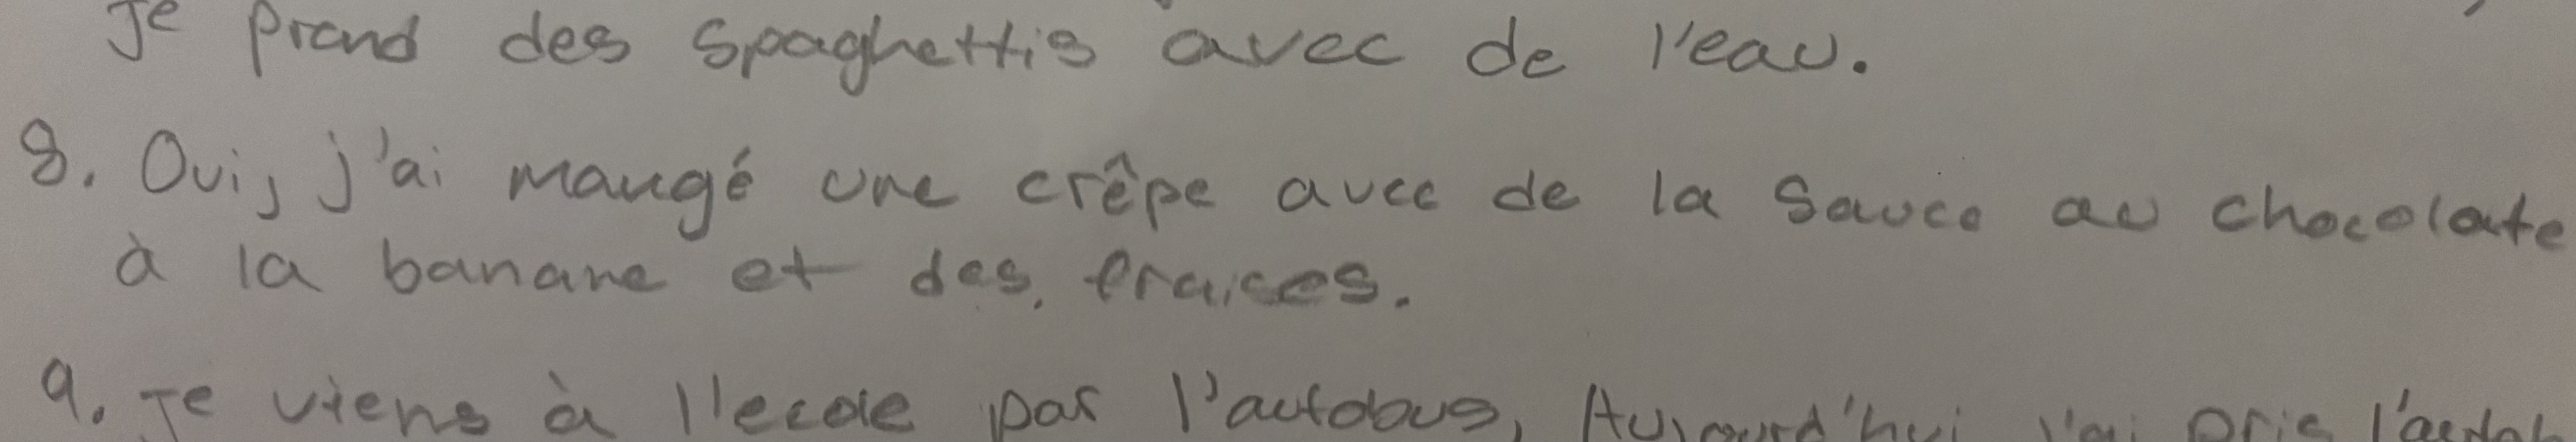 Je prend des spaghettis avec de l'eau.
8. Oui, j'ai maugé une crêpe avec de la sauce au chocolate
à la banane et des fraices.
9. Je viens à l'ecole par l'autobus, Aujourd'hui j'ai pris